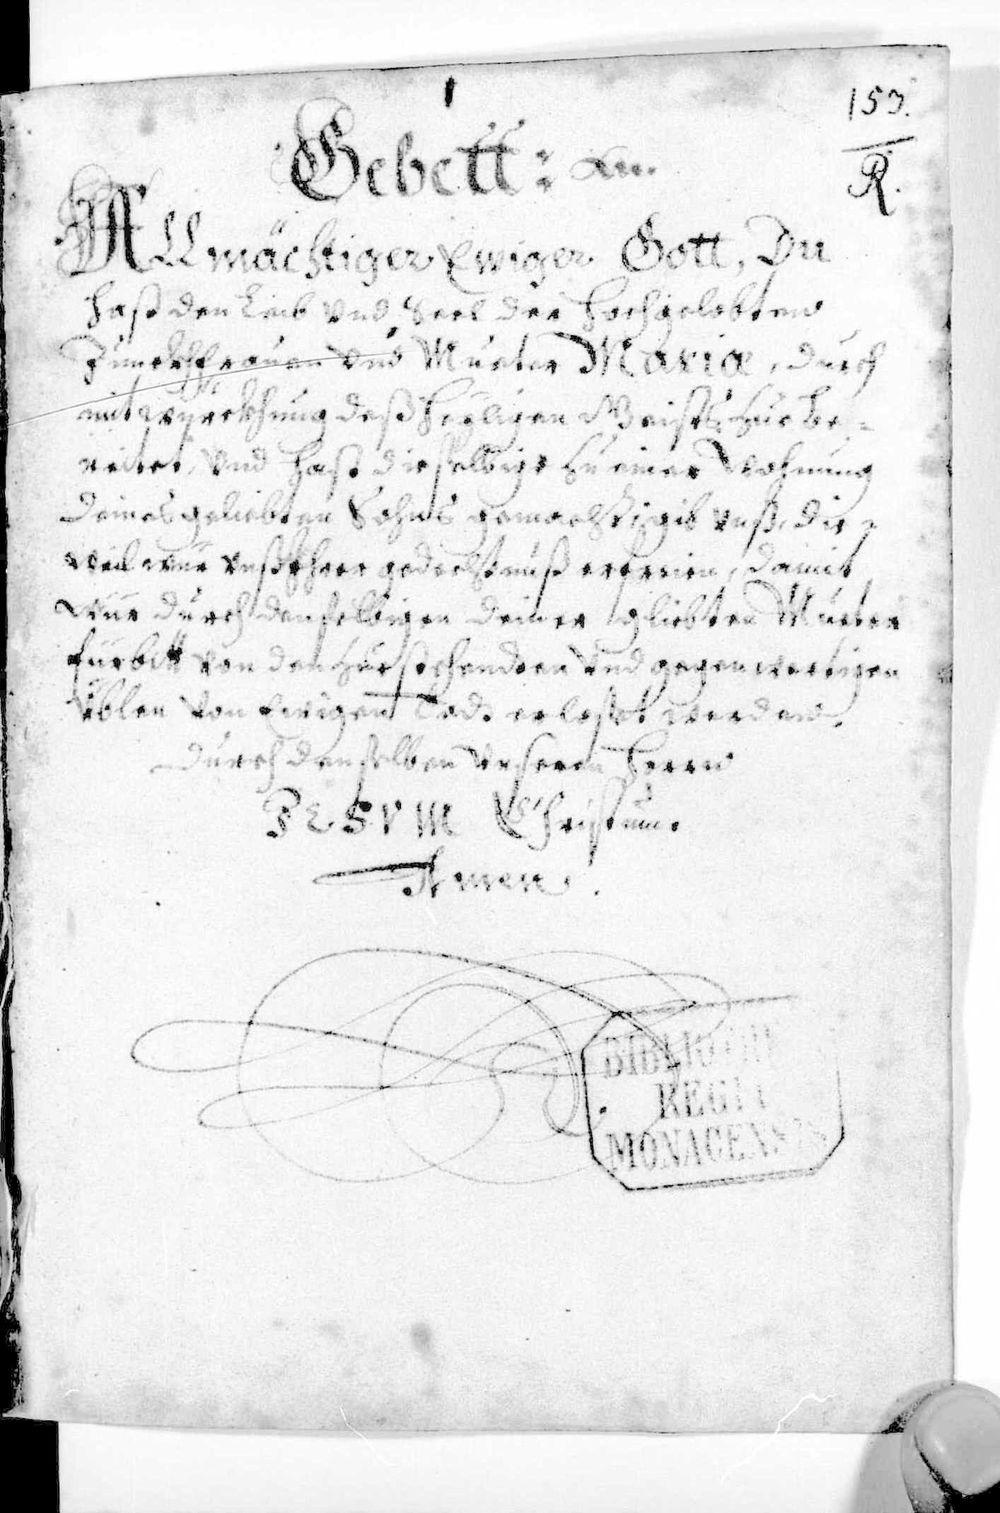 153.
R.
Gebett:
Allmächtiger Ewiger Gott, Du
hast den Leib vnd Seel der hochgelobten
Junckhfrauen vnd Mueter Mariæ, durch
mitwürckhung deß heyligen Geists zue be=
reitet, vnd hast dieselbige zu einer Wohnung
deines geliebten Sohns gemacht, gib vnß, die=
weil wür vnß Ihrer gedechtnuß erfreien, damit
wür durch denselbigen deiner gliebten Mueter
fürbitt von den zuestehendten vnd gegenwertigen
üblen von Ewigen Tod erlößt werden.
Durch denselben vnseren Herrn
JESVM Christum.
Amen.
BIBLIOTHECA
REGIA
MONACENSIS